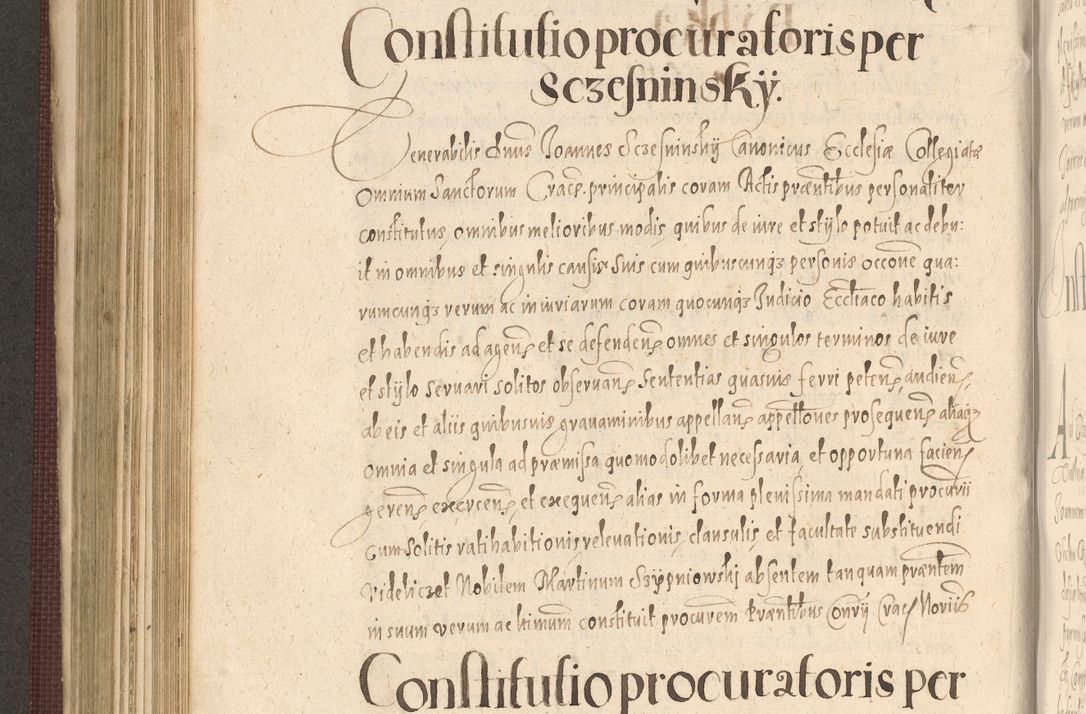 Constitutio procuratoris per
Sczesninskÿ.
Venerabilis dnus Joannes Sczesninskÿ Canonicus Ecclesiæ Collegiatæ
Omnium Sanctorum Crace. principalis coram Actis præntibus personaliter
constitutus, omnibus melioribus modis, quibus de iure et stÿlo potuit ac debu:
it in omnibus et singulis causis suis cum quibuscunqz personis occone qua:
rumcunqz rerum ac iniuriarum coram quocunqz Judicio Eccliaco habitis
et habendis ad agend, et se defendend, omnes et singulos terminos de iure
et stÿlo servari solitos observand, Sententias quasvis ferri petend, audiend,
ab eis et aliis quibusvis gravaminibus appelland, appellones prosequend, aliaqz
omnia et singula ad præmissa quomodolibet necessaria, et opportuna faciend,
gerend, exercend, et exequend, alias in forma plenissima mandati procurii
cum solitis ratihabitionis, relevationis, clausulis, et facultate substituendi
videliczet Nobilem Martinum Szÿpniowskj absentem tanquam præntem
in suum verum ac ltimum constituit procurem Præntibus Conrij Crac. Noriis
Constitutio procuratoris per